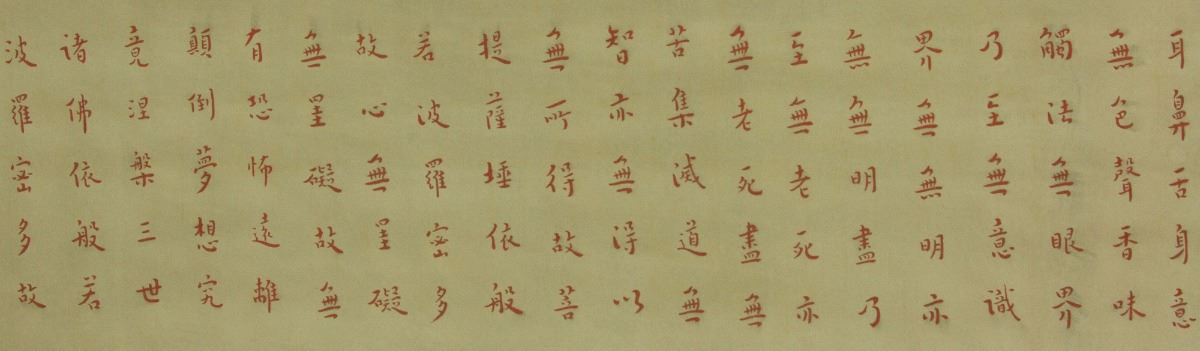 耳鼻舌身意
無色聲香味
觸法無眼界
乃至無意識
界無無明亦
無無明盡乃
至無老死亦
無老死盡無
苦集滅道無
智亦無得以
無所得故菩
提薩埵依般
若波羅密多
故心無罣礙
無罣礙故無
有恐怖遠離
顛倒夢想究
竟涅槃三世
諸佛依般若
波羅密多故